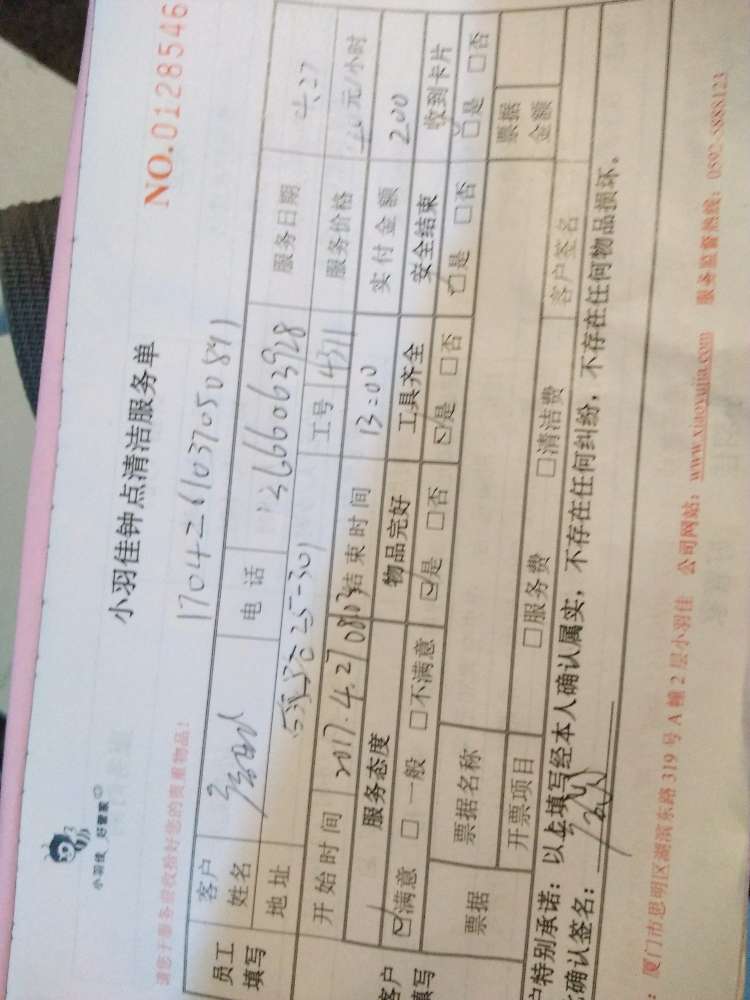 小羽佳 好管家
小羽佳钟点清洁服务单
NO.0128546
请您于服务前收拾好您的贵重物品!
1704261037050891
员工填写
客户姓名
电话
13666063928
服务日期
4.27
地址
25-301
工号
4311
服务价格
元/小时
开始时间
2017.4.27 08:03
结束时间
13:00
实付金额
200
客户填写
服务态度
物品完好
工具齐全
安全结束
收到卡片
☑满意 □一般 □不满意
☑是 □否
☑是 □否
☑是 □否
☑是 □否
票据
票据名称
票据金额
开票项目
□服务费
□清洁费
客户签名
户特别承诺：以上填写经本人确认属实，不存在任何纠纷，不存在任何物品损坏。
确认签名：
：厦门市思明区湖滨东路 319 号 A 幢 2 层小羽佳 公司网站：www.xiaoyujia.com 服务监督热线：0592-5888123